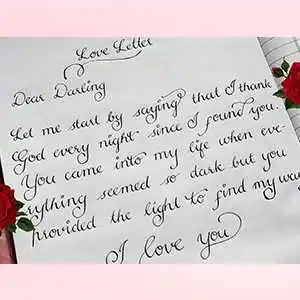 Love Letter
Dear Darling
Let me start by saying that I thank
God every night since I found you.
You came into my life when eve-
rything seemed so dark but you
provided the light to find my way
I love you